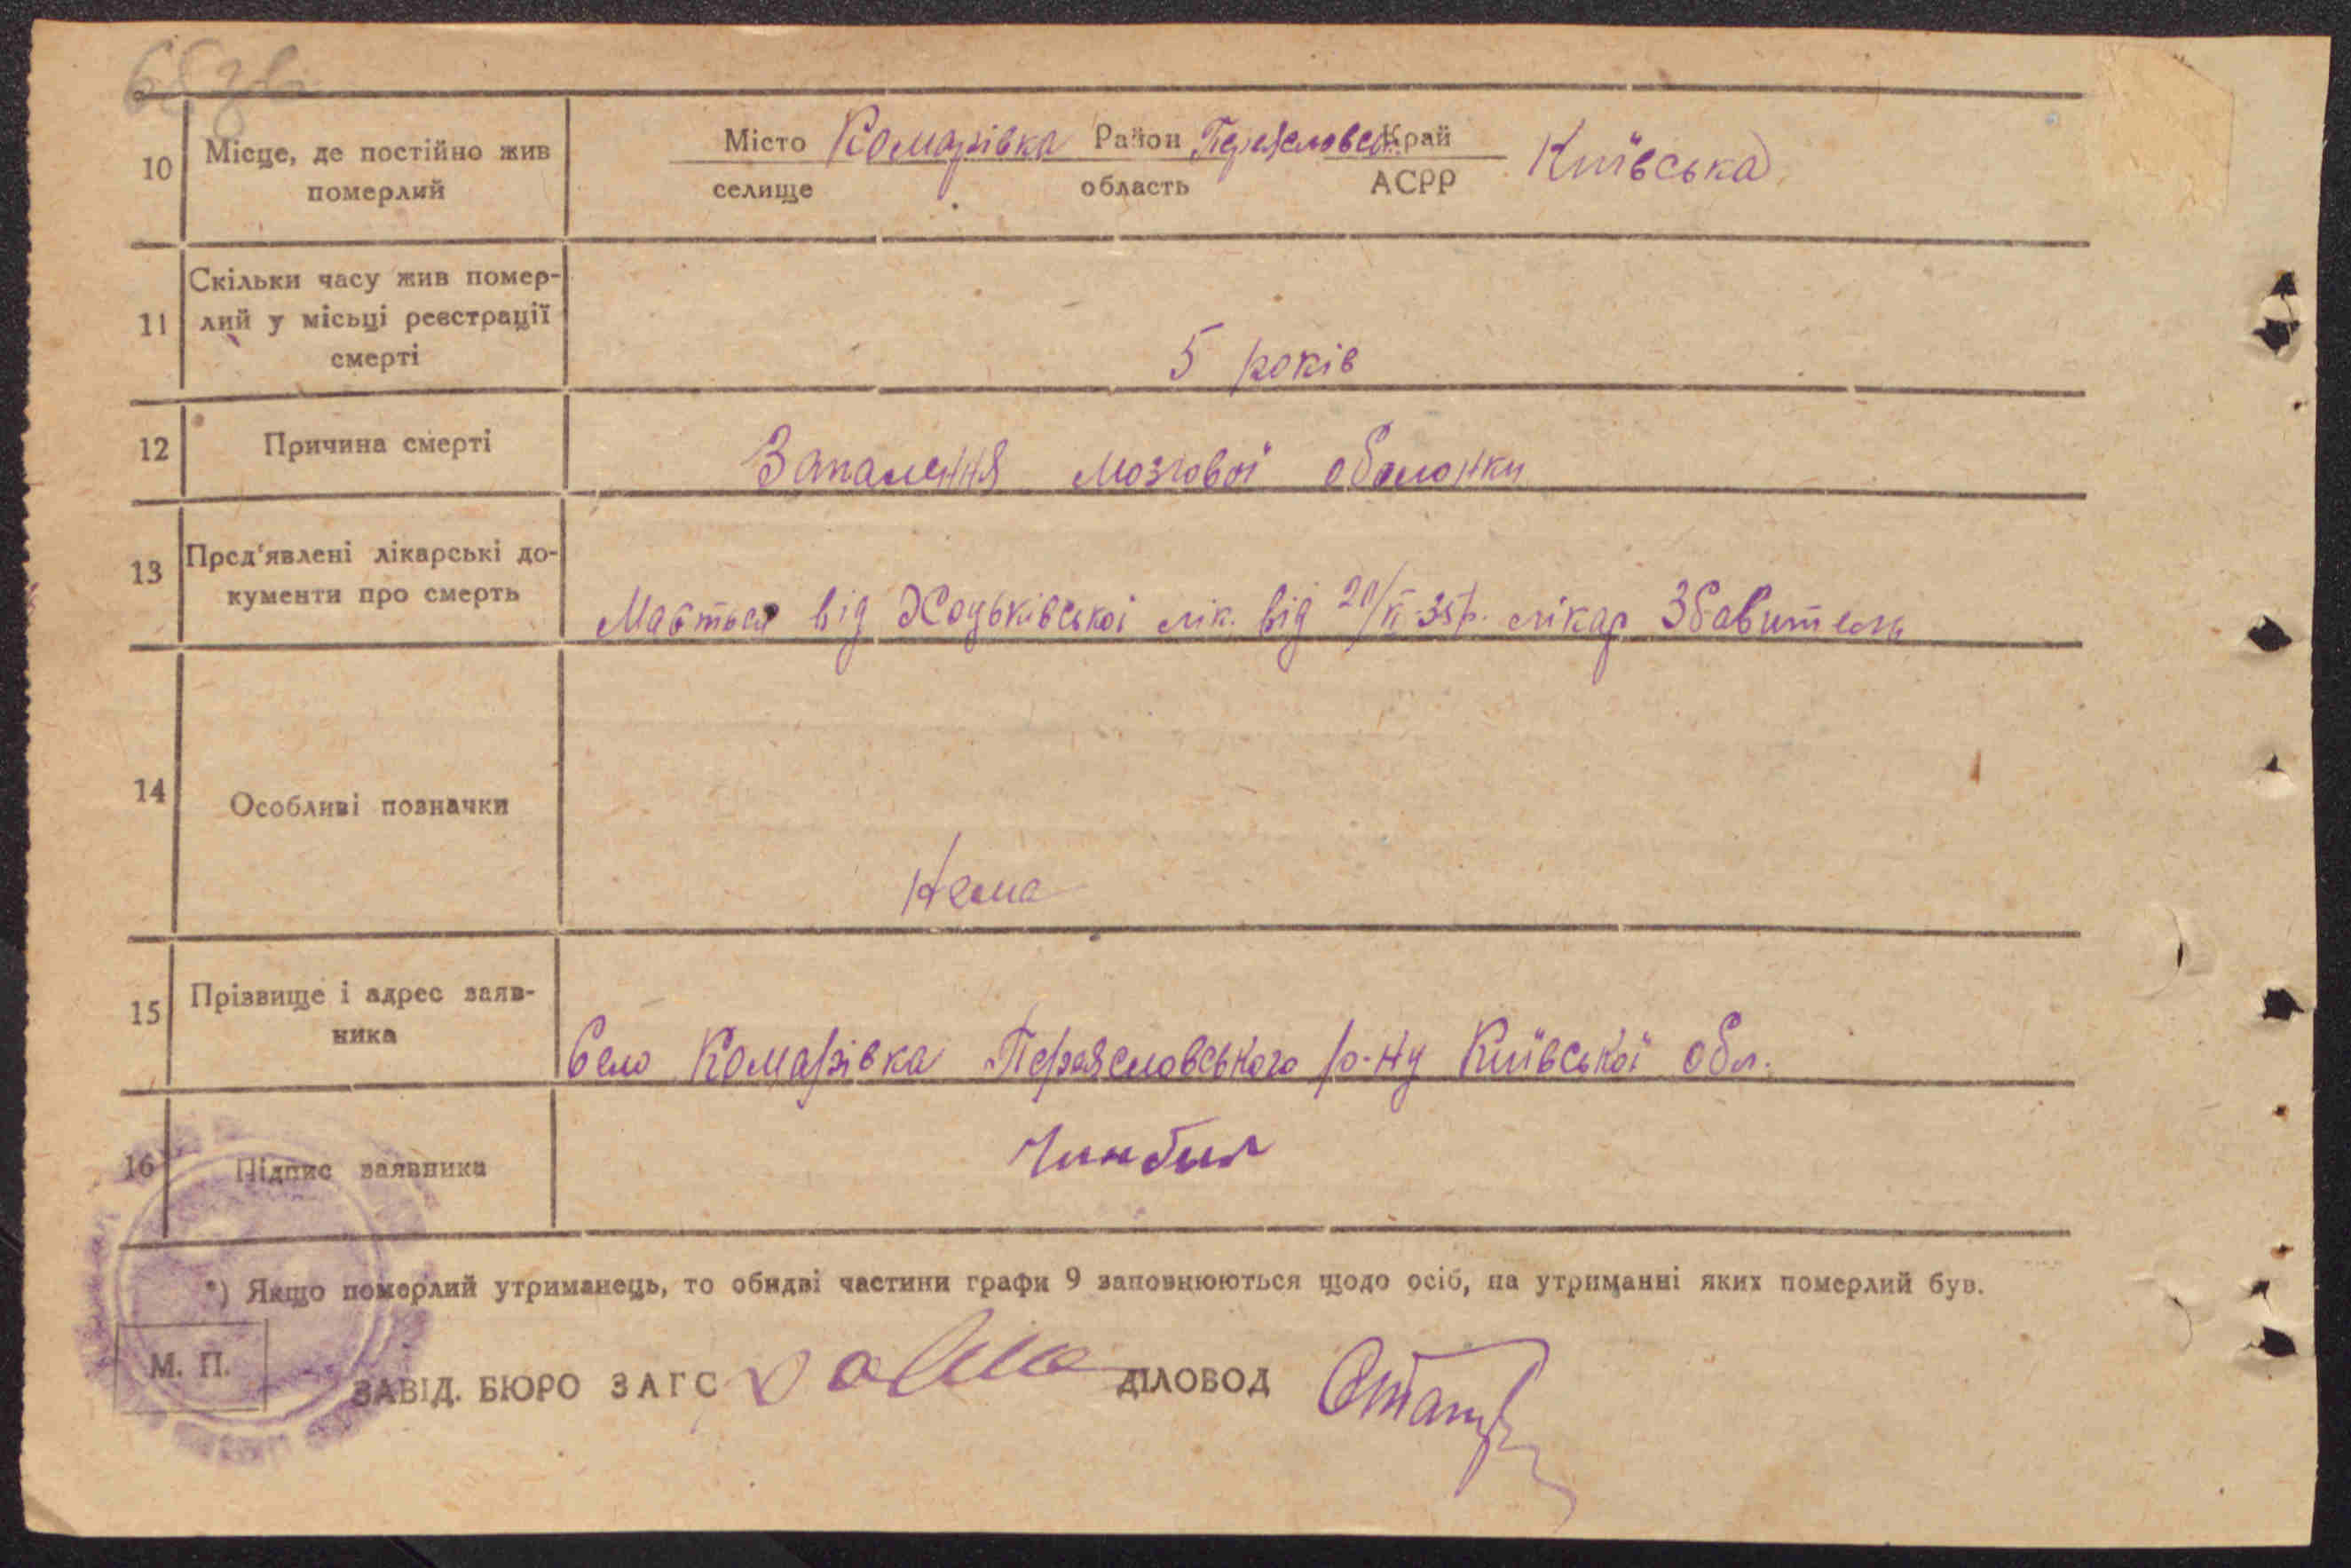 68зв
Місто Комарівка Район Переяславськ Край Київська
селище область АСРР
10 Місце, де постійно жив
померлий
11 Скільки часу жив помер-
лий у місьці реєстрації
смерті
5 років
12 Причина смерті
Запалення мозгової оболонки
13 Пред'явлені лікарські до-
кументи про смерть
від Хоцьківської лік. від 20/ 35р. лікар Збавитель
14 Особливі позначки
Нема
15 Прізвище і адрес заяв-
ника
Село Комарівка Переясловського р-ну Київської обл.
16 Підпис заявника
*) Якщо померлий утриманець, то обидві частини графи 9 заповнюються щодо осіб, на утриманні яких померлий був.
М. П.
ЗАВІД. БЮРО ЗАГС ДІЛОВОД